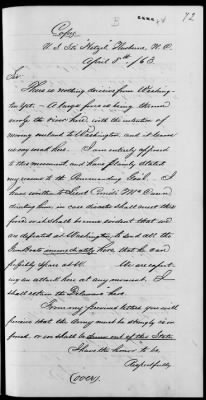 B
72
Copy
U. S. Str "Hetzel" Newbern, N.C.
April 8th /63.
Sir
There is nothing decisive from Washing-
ton yet. A large force is being thrown
over the river here with the intention of
moving overland to Washington, and it leaves
us very weak here. I am entirely opposed
to this movement and have plainly stated
my reasons to the Commanding Genl. I
have written to Lieut. Comdr.
directing him in case disaster shall meet this
force and it shall become evident that we
are defeated at Washington to send all the
Gun Boats immediately here that he can
possibly spare
We are expect-
ing an attack here at any moment. I
shall retain the Delaware here.
From my former letters you will
perceive that the Army must be strongly rein-
forced, or we shall be driven out of this State.
I have the honor to be,
Respectfully
(over)